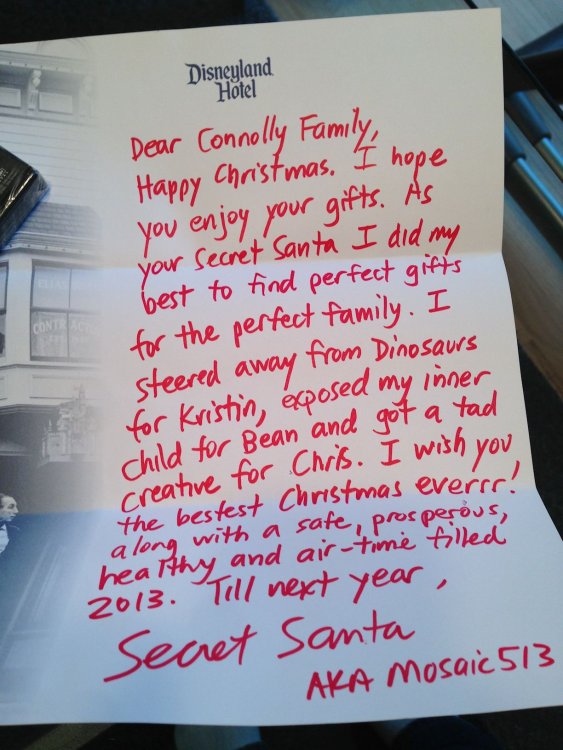 Disneyland
Hotel
Dear Connolly Family,
Happy Christmas. I hope
you enjoy your gifts. As
your Secret Santa I did my
best to find perfect gifts
for the perfect family. I
steered away from Dinosaurs
for Kristin, exposed my inner
child for Bean and got a tad
creative for Chris. I wish you
the bestest Christmas everrr!,
along with a safe, prosperous,
healthy and air-time filled
2013. Till next year,
Secret Santa
AKA Mosaic513
ELIAS
CONTRACTOR